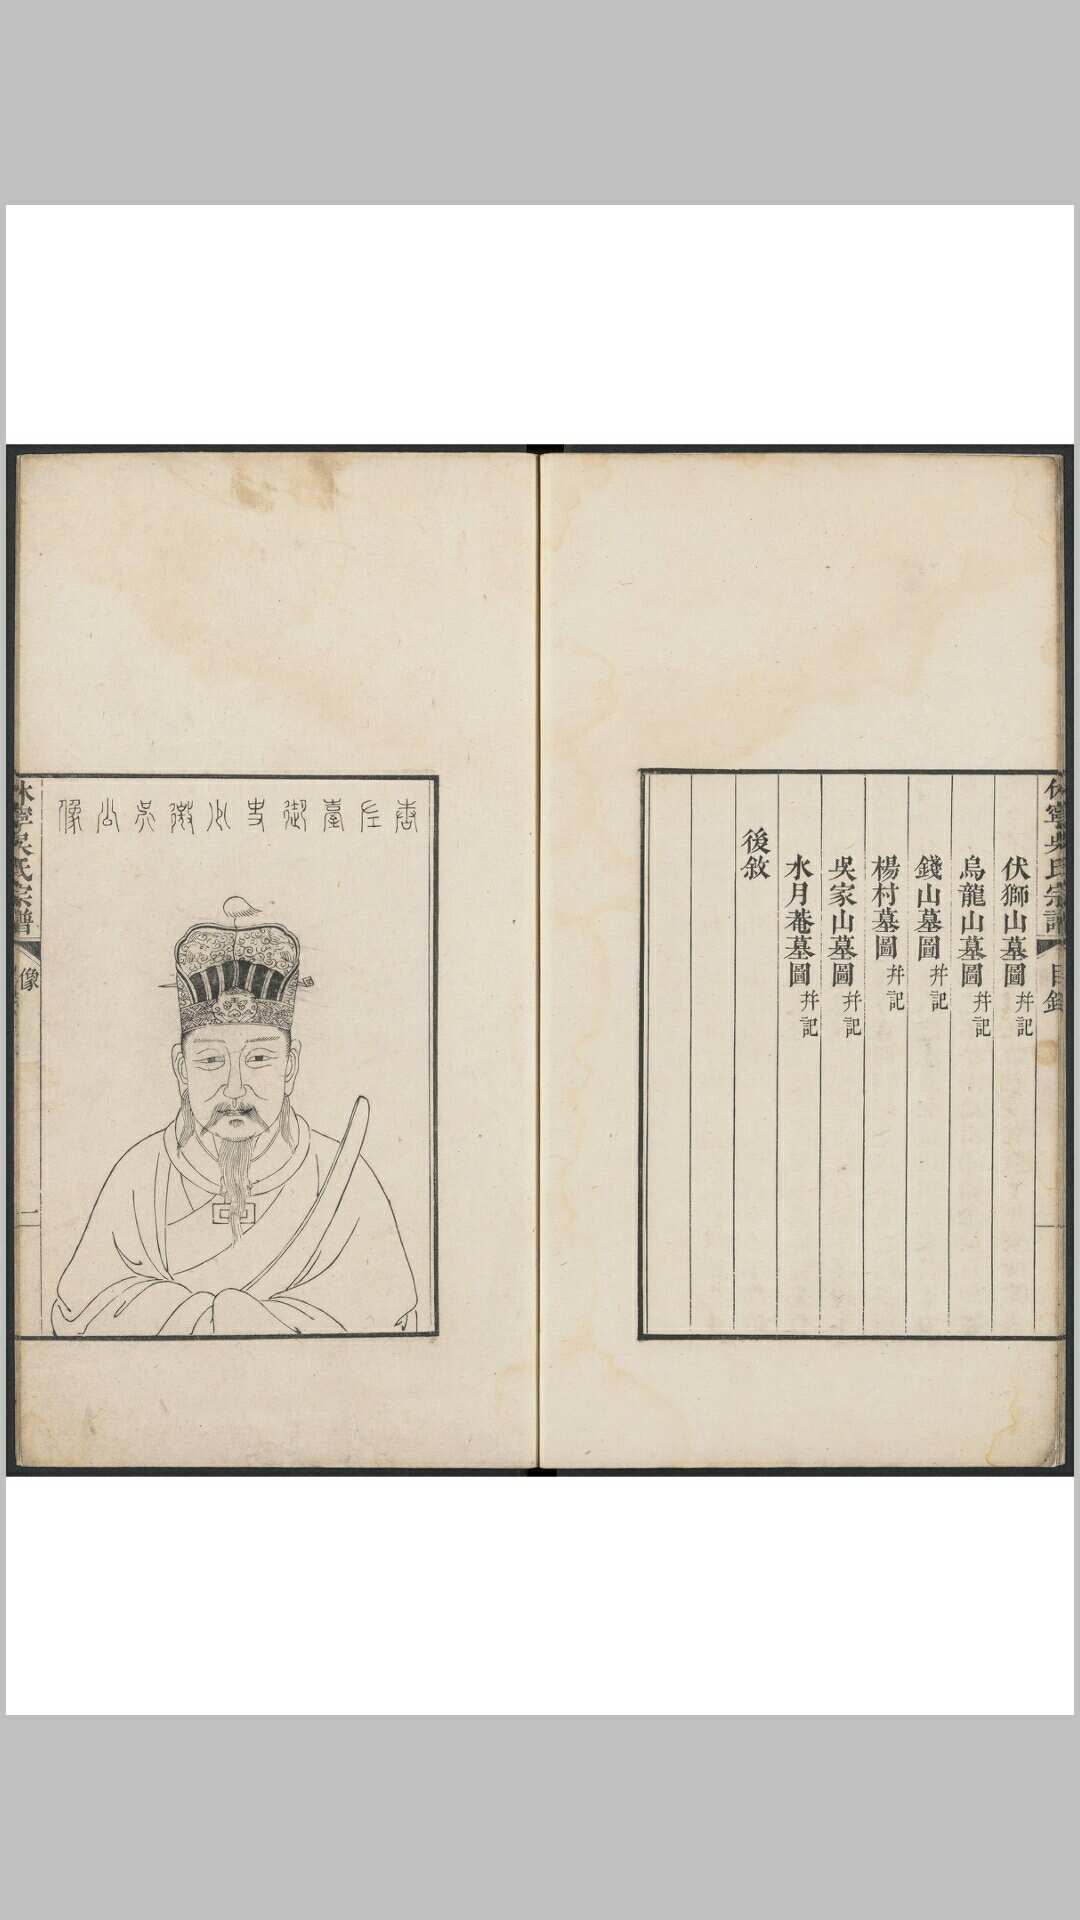 休寧吳氏宗譜 目錄
伏獅山墓圖 幷記
烏龍山墓圖 幷記
錢山墓圖 幷記
楊村墓圖 幷記
吳家山墓圖 幷記
水月菴墓圖 幷記
後敘
唐左臺御史少微吳公像
休寧吳氏宗譜 像 一